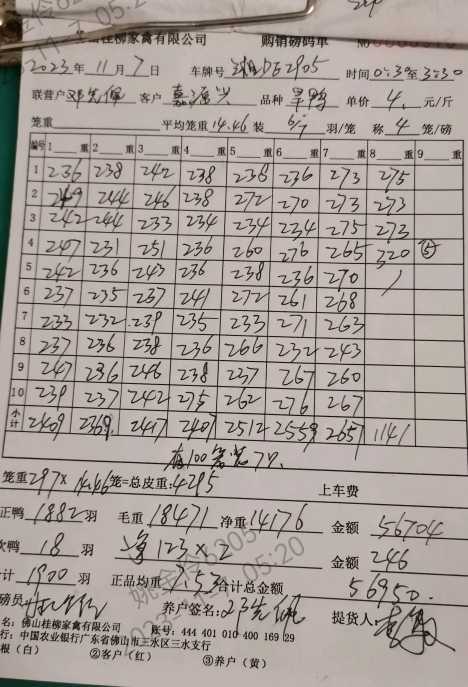 佛山桂柳家禽有限公司 购销磅码单 No
2023年11月7日 车牌号 时间0:30至3:30
联营户 客户 嘉源兴 品种 旱鸭 单价 4. 元/斤
笼重 平均笼重 14.46 装 6/7 羽/笼 称 4 笼/磅
编号 1 重 2 重 3 重 4 重 5 重 6 重 7 重 8 重 9 重
1 236 238 242 238 236 236 273 275
2 249 244 246 238 272 270 273 273
3 242 244 233 234 234 234 275 273
4 247 231 251 236 260 276 265 320 ⑤
5 242 236 243 236 238 236 270
6 237 235 237 241 272 261 268
7 233 232 239 235 233 271 263
8 237 236 238 236 266 232 243
9 247 236 246 238 237 267 260
10 239 237 242 275 262 276 267
小计 2409 2369 2417 2407 2512 2559 2657 1141
有100笼装7只.
笼重297×14.46笼=总皮重:4295 上车费
正鸭 1882 羽 毛重 18471 净重 14176 金额 56704
次鸭 18 羽 净 123×2 金额 246
计 1900 羽 正品均重 7.53 合计总金额 56950.
磅员 养户签名: 邓先佩 提货人:
名: 佛山桂柳家禽有限公司 账号: 444 401 010 400 169 29
行: 中国农业银行广东省佛山市三水区三水支行
根（白） ②客户（红） ③养户（黄）